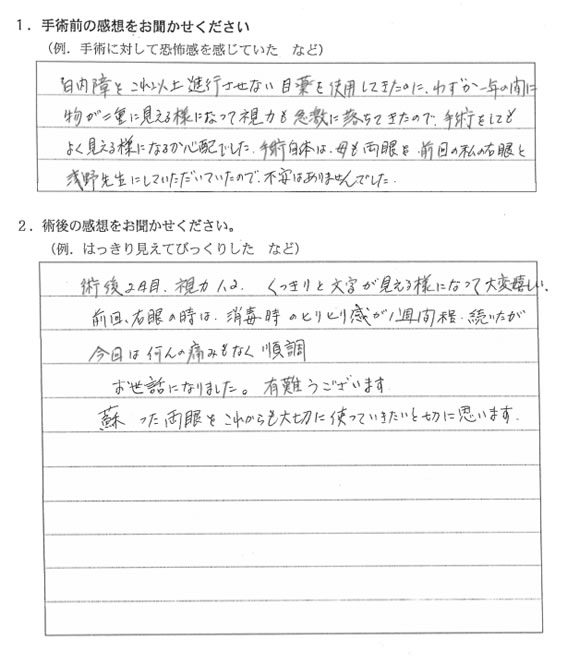 1．手術前の感想をお聞かせください
（例．手術に対して恐怖感を感じていた　など）
白内障をこれ以上進行させない目薬を使用してきたのに、わずか一年の間に
物が二重に見える様になって視力も急激に落ちてきたので、手術をしても
よく見える様になるか心配でした。手術自体は、母も両眼を、前回の私の右眼と
浅野先生にしていただいていたので、不安はありませんでした。
2．術後の感想をお聞かせください。
（例．はっきり見えてびっくりした　など）
術後2日目、視力1.2．くっきりと文字が見える様になって大変嬉しい、
前回、右眼の時は、消毒時のヒリヒリ感が1週間程、続いたが
今回は何んの痛みもなく順調
お世話になりました。有難うございます
蘇った両眼をこれからも大切に使っていきたいと切に思います．